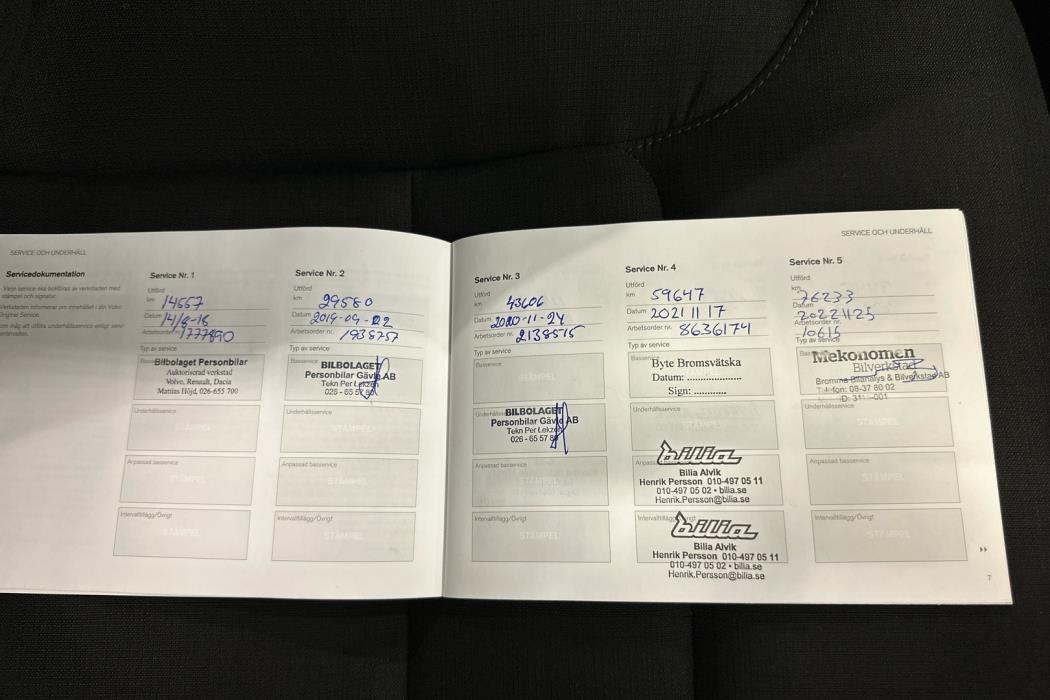 SERVICE OCH UNDERHÅLL
Servicedokumentation
Varje service ska bokföras av verkstaden med
stämpel och signatur.
Service Nr. 1
Utförd
km 14557
Datum 14/8-18
Arbetsorder nr. 1777890
Typ av service
Bilbolaget Personbilar
Auktoriserad verkstad
Volvo, Renault, Dacia
Mattias Höjd, 026-655 700
Underhållsservice
STÄMPEL
Anpassad basservice
STÄMPEL
Intervalltillägg/Övrigt
STÄMPEL
Service Nr. 2
Utförd
km 29580
Datum 2019-09-22
Arbetsorder nr. 1938757
Typ av service
BILBOLAGET
Personbilar Gävle AB
Tekn Per Lekzén
026 - 65 57
Underhållsservice
STÄMPEL
Anpassad basservice
STÄMPEL
Intervalltillägg/Övrigt
STÄMPEL
Service Nr. 3
Utförd
km 43606
Datum 2020-11-24
Arbetsorder nr. 2138515
Typ av service
Basservice
STÄMPEL
Underhållsservice
BILBOLAGET
Personbilar Gävle AB
Tekn Per Lekzén
026 - 65 57 8
Anpassad basservice
STÄMPEL
Intervalltillägg/Övrigt
STÄMPEL
Service Nr. 4
Utförd
km 59647
Datum 2021 11 17
Arbetsorder nr. 8636174
Typ av service
Byte Bromsvätska
Datum: ...................
Sign: ............
Underhållsservice
STÄMPEL
bilia
Bilia Alvik
Henrik Persson 010-497 05 11
010-497 05 02 • bilia.se
Henrik.Persson@bilia.se
bilia
Bilia Alvik
Henrik Persson 010-497 05 11
010-497 05 02 • bilia.se
Henrik.Persson@bilia.se
SERVICE OCH UNDERHÅLL
Service Nr. 5
Utförd
km 76233
Datum 20221125
Arbetsorder nr. 10615
Typ av service
Mekonomen
Bilverkstad
Bromma Bilanalys & Bilverkstad AB
Telefon: 08-37 80 02
Underhållsservice
STÄMPEL
Anpassad basservice
STÄMPEL
Intervalltillägg/Övrigt
STÄMPEL
7